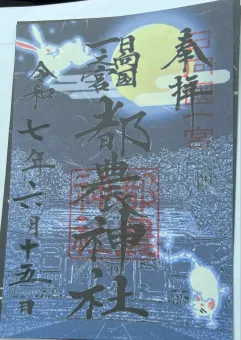 奉拝
日向国
一之宮
都農神社
令和七年六月十五日